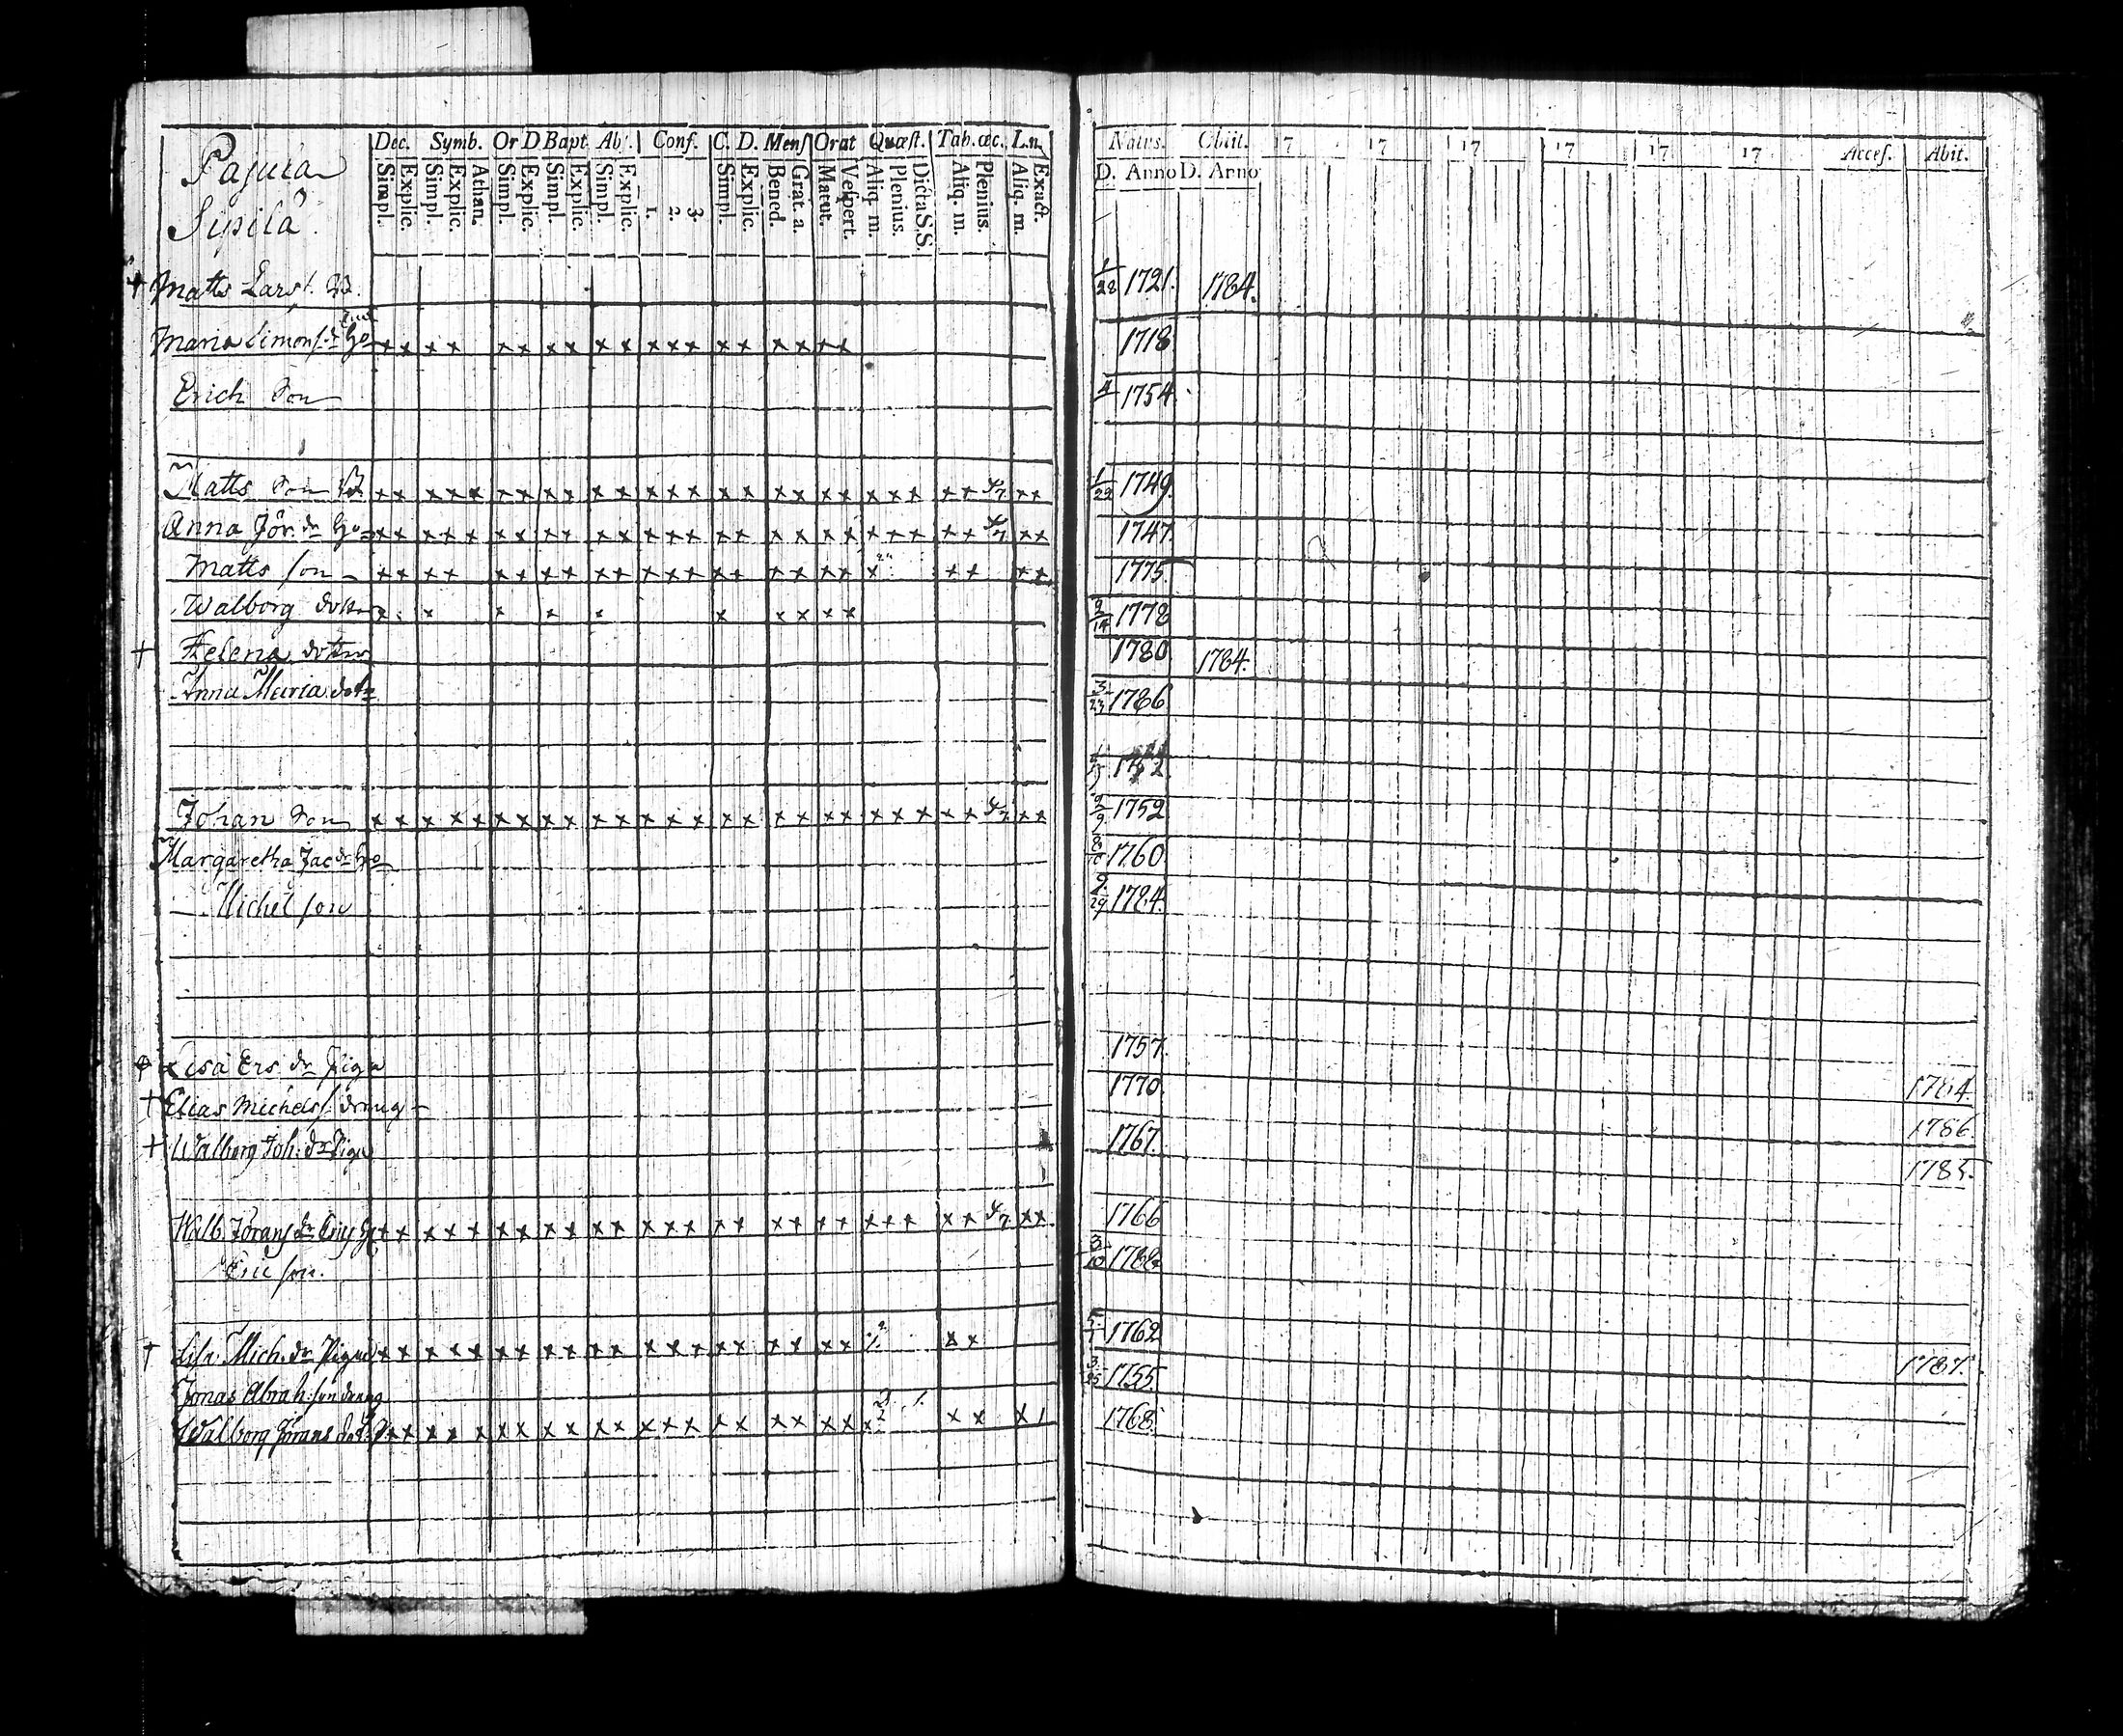 Pajula
Sipilä
Dec. Symb. Or D Bapt. Abs. Conf. C. D. Mens Orat Quæst. Tab. œc. Ln.
Simpl. Explic. Simpl. Explic. Athan. Simpl. Explic. Simpl. Explic. Simpl. Explic. 1. 2. 3. Simpl. Explic. Bened. Grat. a. Matut. Vespert. Aliq. m. Plenius. Dicta S.S. Aliq. m. Plenius. Aliq. m. Exact.
Natus. Obiit. 17 17 17 17 17 17 Acces. Abit.
D. Anno D. Anno
† Matts Lars s. B. 1/28 1721. 1784.
Maria Simons dr 1718
Erich Son 4 1754.
Matts Son B 1/22 1749.
Anna Jör. dr Hu 1747.
Matts son 1775
Walborg dotter 2/14 1778
† Helena dotter 1780 1784.
Anna Maria dotr 3/23 1786
Johan Son 2/9 1752
Margaretha Jac dr 1760.
Michel son 9/29 1784.
Lisa Ers dr Piga 1757.
† Elias Michels s. dräng 1770. 1784.
† Walborg Joh: dr Piga 1767. 1786.
1785.
Walb. Jörans dr 1766
Eric son. 3/10 1788
† Lisa Mich. dr Piga 1762
Jonas Abrah: son dräng 3/25 1755. 1787.
Walborg Jörans dotr 1768.